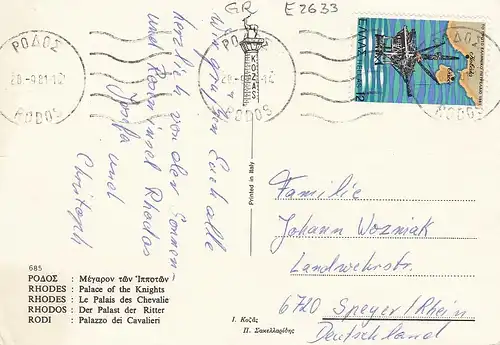 GR E2633
ΡΟΔΟΣ
28-9.81-12
RODOS
ΚΟΖΑΣ
ΡΟΔΟΣ
RODOS
ΕΛΛΑΣ
12
Wir grüßen Euch alle
herzlich von der Sonnen-
und Roseninsel Rhodos
Josefa und
Christoph
Printed in Italy
Familie
Johann Wozniak
Landwehrstr.
6720 Speyer/Rhein
Deutschland
685
ΡΟΔΟΣ : Μέγαρον τῶν Ἱπποτῶν
RHODES : Palace of the Knights
RHODES : Le Palais des Chevalie
RHODOS : Der Palast der Ritter
RODI : Palazzo dei Cavalieri
Ι. Κοζᾶς
Π. Σακελλαρίδης